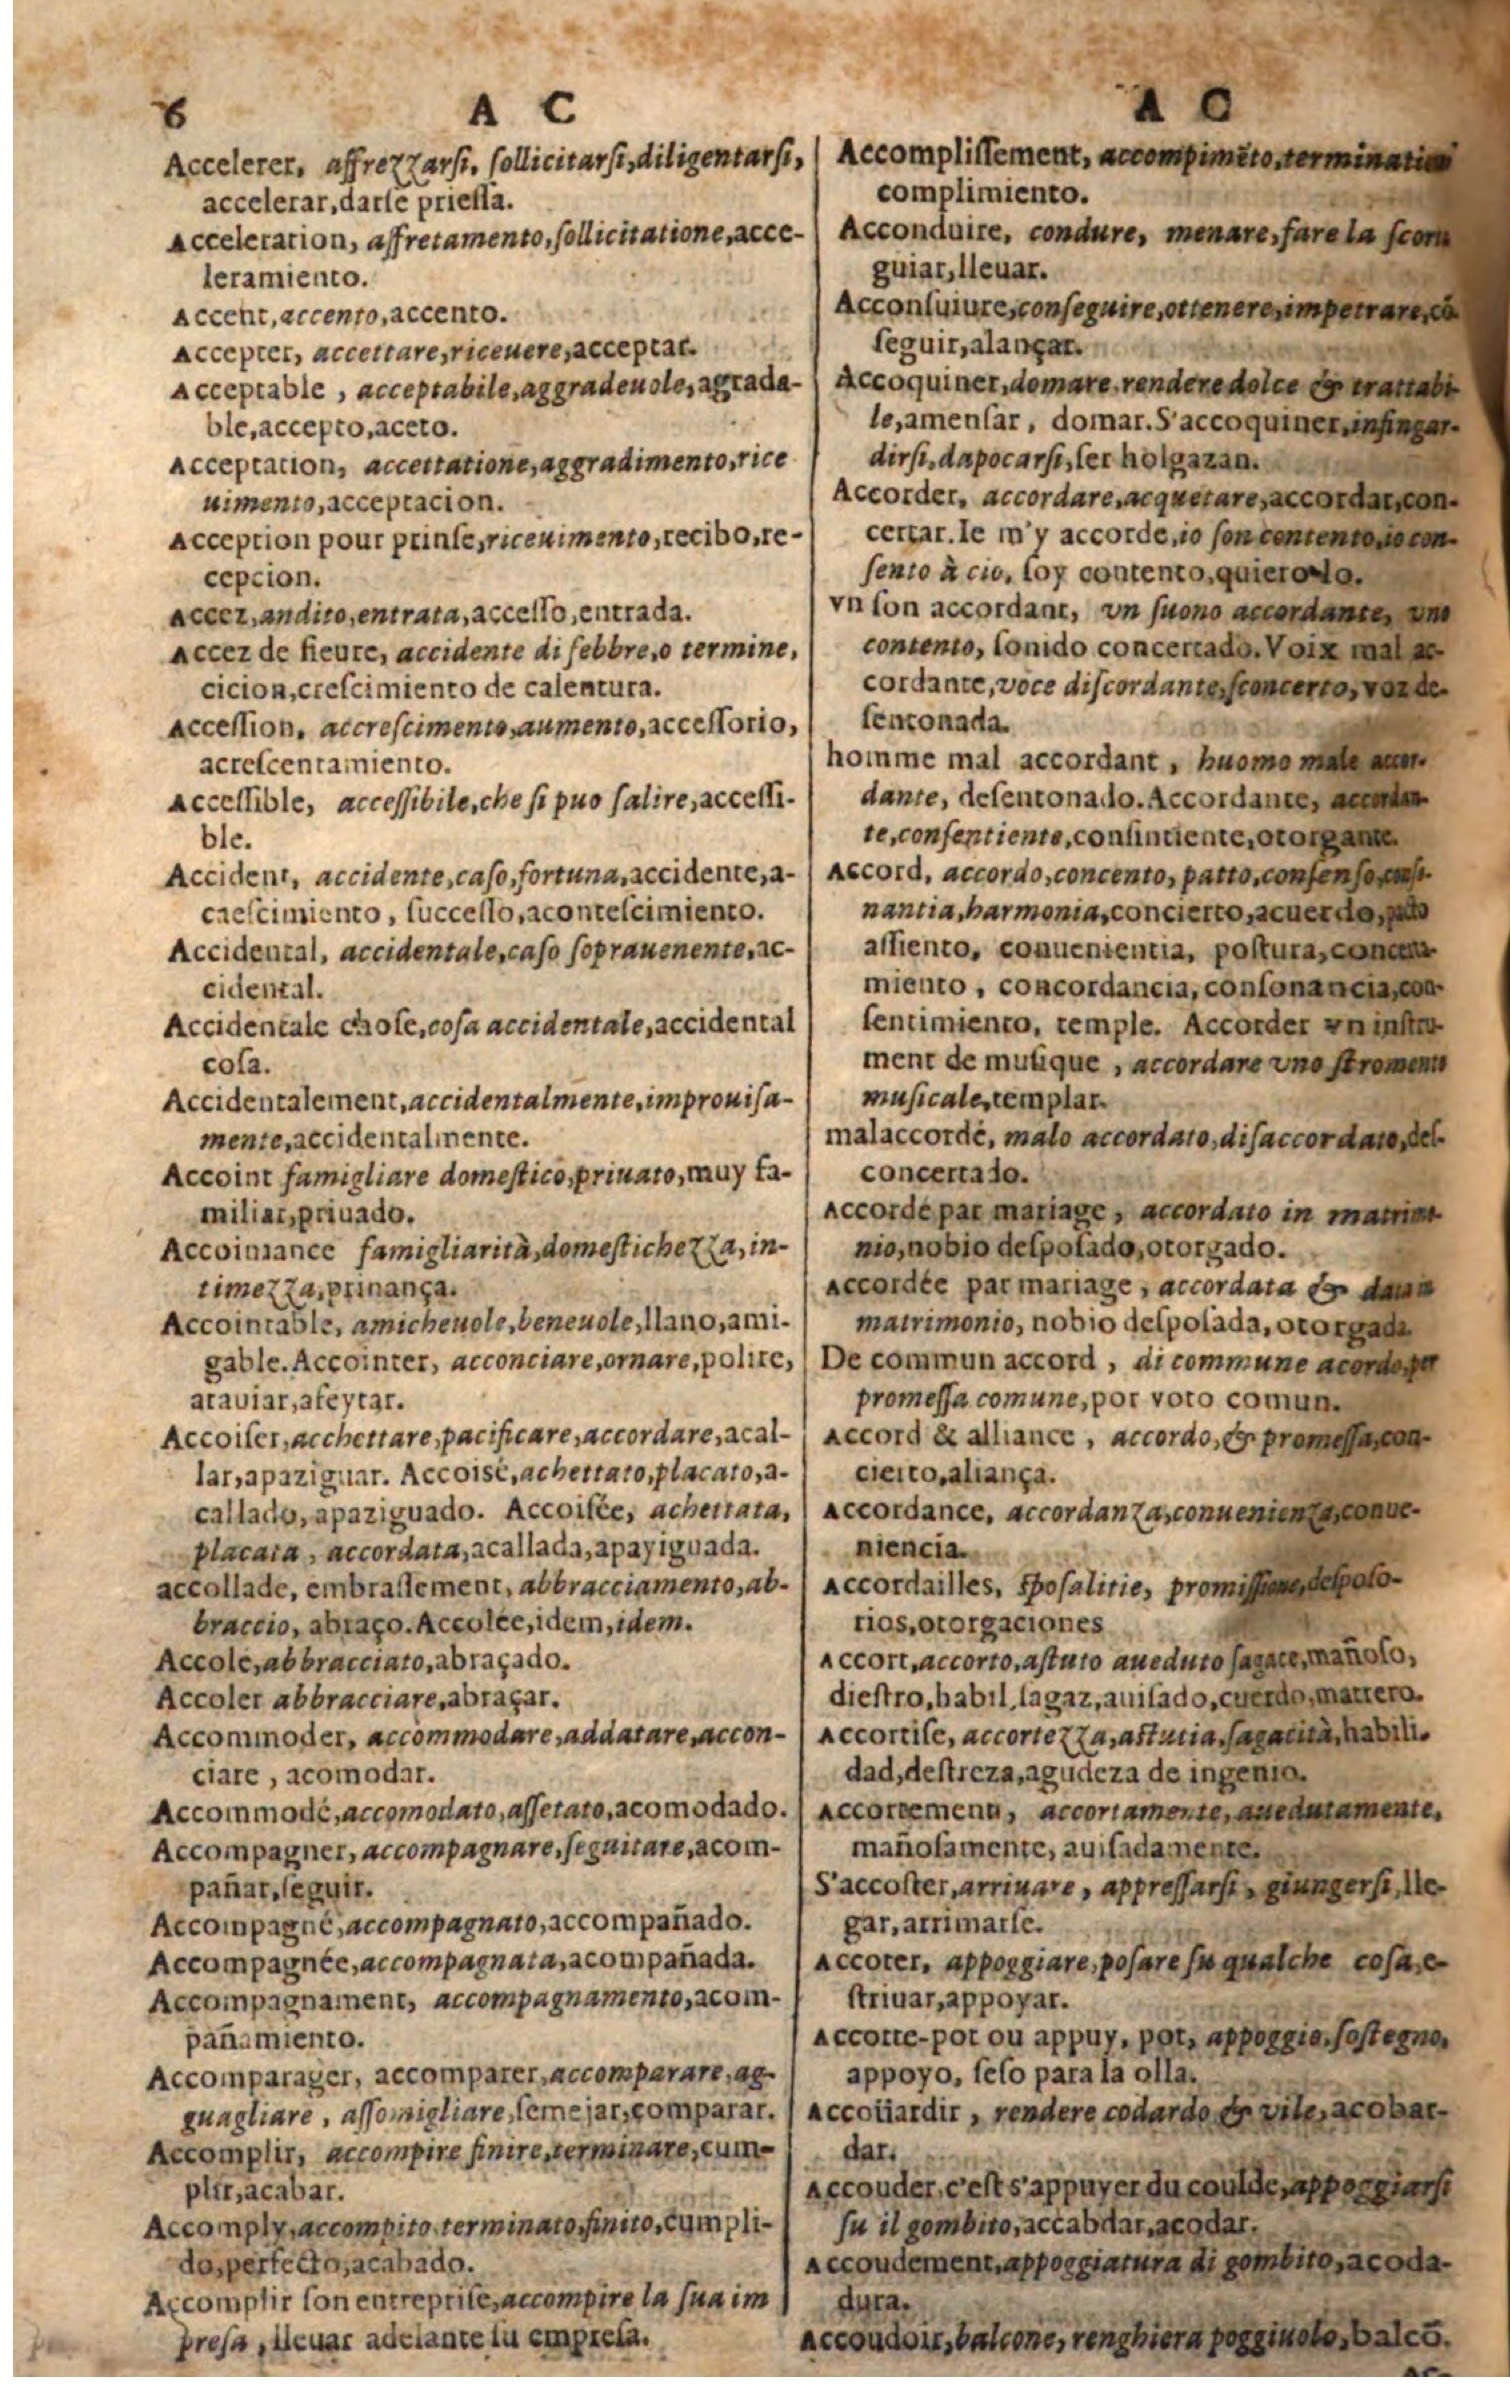 6 A C
Accelerer, affrezzarsi, ſollicitarſi,diligentarſi,
accelerar,darſe prieſſa.
Acceleration, affretamento,ſollicitatione,acce-
leramiento.
Accent,accento,accento.
Accepter, accettare,riceuere,acceptar.
Acceptable , acceptabile,aggradeuole,agrada-
ble,accepto,aceto.
Acceptation, accettatione,aggradimento,rice
uimento,acceptacion.
Acception pour prinſe,riceuimento,recibo,re-
cepcion.
Accez,andito,entrata,acceſſo,entrada.
Accez de fieure, accidente di febbre,o termine,
cicion,creſcimiento de calentura.
Acceſſion, accreſcimento,aumento,acceſſorio,
acreſcentamiento.
Acceſſible, acceſſibile,che ſi puo ſalire,acceſſi-
ble.
Accident, accidente,caſo,fortuna,accidente,a-
caeſcimiento, ſucceſſo,aconteſcimiento.
Accidental, accidentale,caſo ſoprauenente,ac-
cidental.
Accidentale choſe,coſa accidentale,accidental
coſa.
Accidentalement,accidentalmente,improuiſa-
mente,accidentalmente.
Accoint famigliare domeſtico,priuato,muy fa-
miliar,priuado.
Accointance famigliarità,domeſtichezza,in-
timezza,prinança.
Accointable, amicheuole,beneuole,llano,ami-
gable.Accointer, acconciare,ornare,polire,
ataviar,afeytar.
Accoiſer,acchettare,pacificare,accordare,acal-
lar,apaziguar. Accoisé,achettato,placato,a-
callado,apaziguado. Accoiſée, achettata,
placata, accordata,acallada,apayiguada.
accollade, embraſſement, abbracciamento,ab-
braccio, abraço.Accolée,idem,idem.
Accolé,abbracciato,abraçado.
Accoler abbracciare,abraçar.
Accommoder, accommodare,addatare,accon-
ciare, acomodar.
Accommodé,accomodato,aſſetato,acomodado.
Accompagner,accompagnare,ſeguitare,acom-
pañar,ſeguir.
Accompagné,accompagnato,accompañado.
Accompagnée,accompagnata,acompañada.
Accompagnament, accompagnamento,acom-
pañamiento.
Accomparager, accomparer,accomparare,ag-
guagliare, aſſomigliare,ſemejar,comparar.
Accomplir, accompire finire,terminare,cum-
plir,acabar.
Accomply,accompito,terminato,finito,cumpli-
do,perfecto,acabado.
Accomplir ſon entrepriſe,accompire la ſua im
preſa, lleuar adelante ſu empreſa.
A C
Accompliſſement, accompimēto,
complimiento.
Acconduire, condure, menare,fare la
guiar,lleuar.
Acconſuiure,conſeguire,ottenere,impetrare,cō-
ſeguir,alançar.
Accoquiner,domare,rendere dolce & trattabi-
le,amenſar, domar.S'accoquiner,infingar-
dirſi,dapocarſi,ſer holgazan.
Accorder, accordare,acquetare,accordar,con-
certar.Ie m'y accorde,io ſon contento,io con-
ſento à cio, ſoy contento,quiero lo.
vn ſon accordant, vn ſuono accordante, vno
contento, ſonido concertado.Voix mal ac-
cordante,voce diſcordante,ſconcerto, voz de-
ſentonada.
homme mal accordant, huomo male accor-
dante, deſentonado.Accordante, accordan-
te,conſentiente,conſintiente,otorgante.
Accord, accordo,concento,patto,conſenſo,conſo-
nantia,harmonia,concierto,acuerdo,
aſſiento, conuenientia, poſtura,concerta-
miento, concordancia,conſonancia,con-
ſentimiento, temple. Accorder vn inſtru-
ment de muſique, accordare vno ſtromento
muſicale,templar.
malaccordé, malo accordato,diſaccordato,deſ-
concertado.
Accordé par mariage, accordato in matrimo-
nio,nobio deſpoſado,otorgado.
Accordée par mariage, accordata & data in
matrimonio, nobio deſpoſada,otorgada.
De commun accord, di commune acordo,per
promeſſa comune,por voto comun.
Accord & alliance, accordo,& promeſſa,con-
cierto,aliança.
Accordance, accordanza,conuenienza,conue-
niencia.
Accordailles, ſpoſalitie, promiſſione,deſpoſo-
rios,otorgaciones
Accort,accorto,aſtuto aueduto ſagace,mañoſo,
dieſtro,habil,ſagaz,auiſado,cuerdo,matrero.
Accortiſe, accortezza,aſtutia,ſagacità,habili-
dad,deſtreza,agudeza de ingenio.
Accortement, accortamente,auedutamente,
mañoſamente, auiſadamente.
S'accoſter,arriuare, appreſſarſi, giungerſi,lle-
gar,arrimarſe.
Accoter, appoggiare,poſare ſu qualche coſa,e-
ſtriuar,appoyar.
Accotte-pot ou appuy, pot, appoggio,ſoſtegno,
appoyo, ſeſo para la olla.
Accoüardir, rendere codardo & vile,acobar-
dar.
Accouder,c'eſt s'appuyer du coulde,appoggiarſi
ſu il gombito,accabdar,acodar.
Accoudement,appoggiatura di gombito,acoda-
dura.
Accoudoir,balcone, renghiera poggiuolo,balcō.